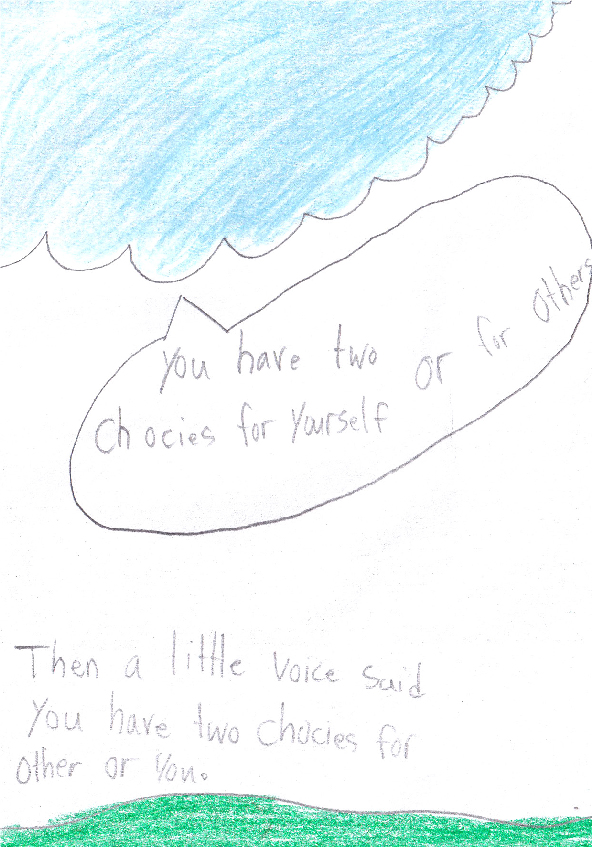 You have two or for others
Chocies for yourself
Then a little voice said
You have two chocies for
other or You.